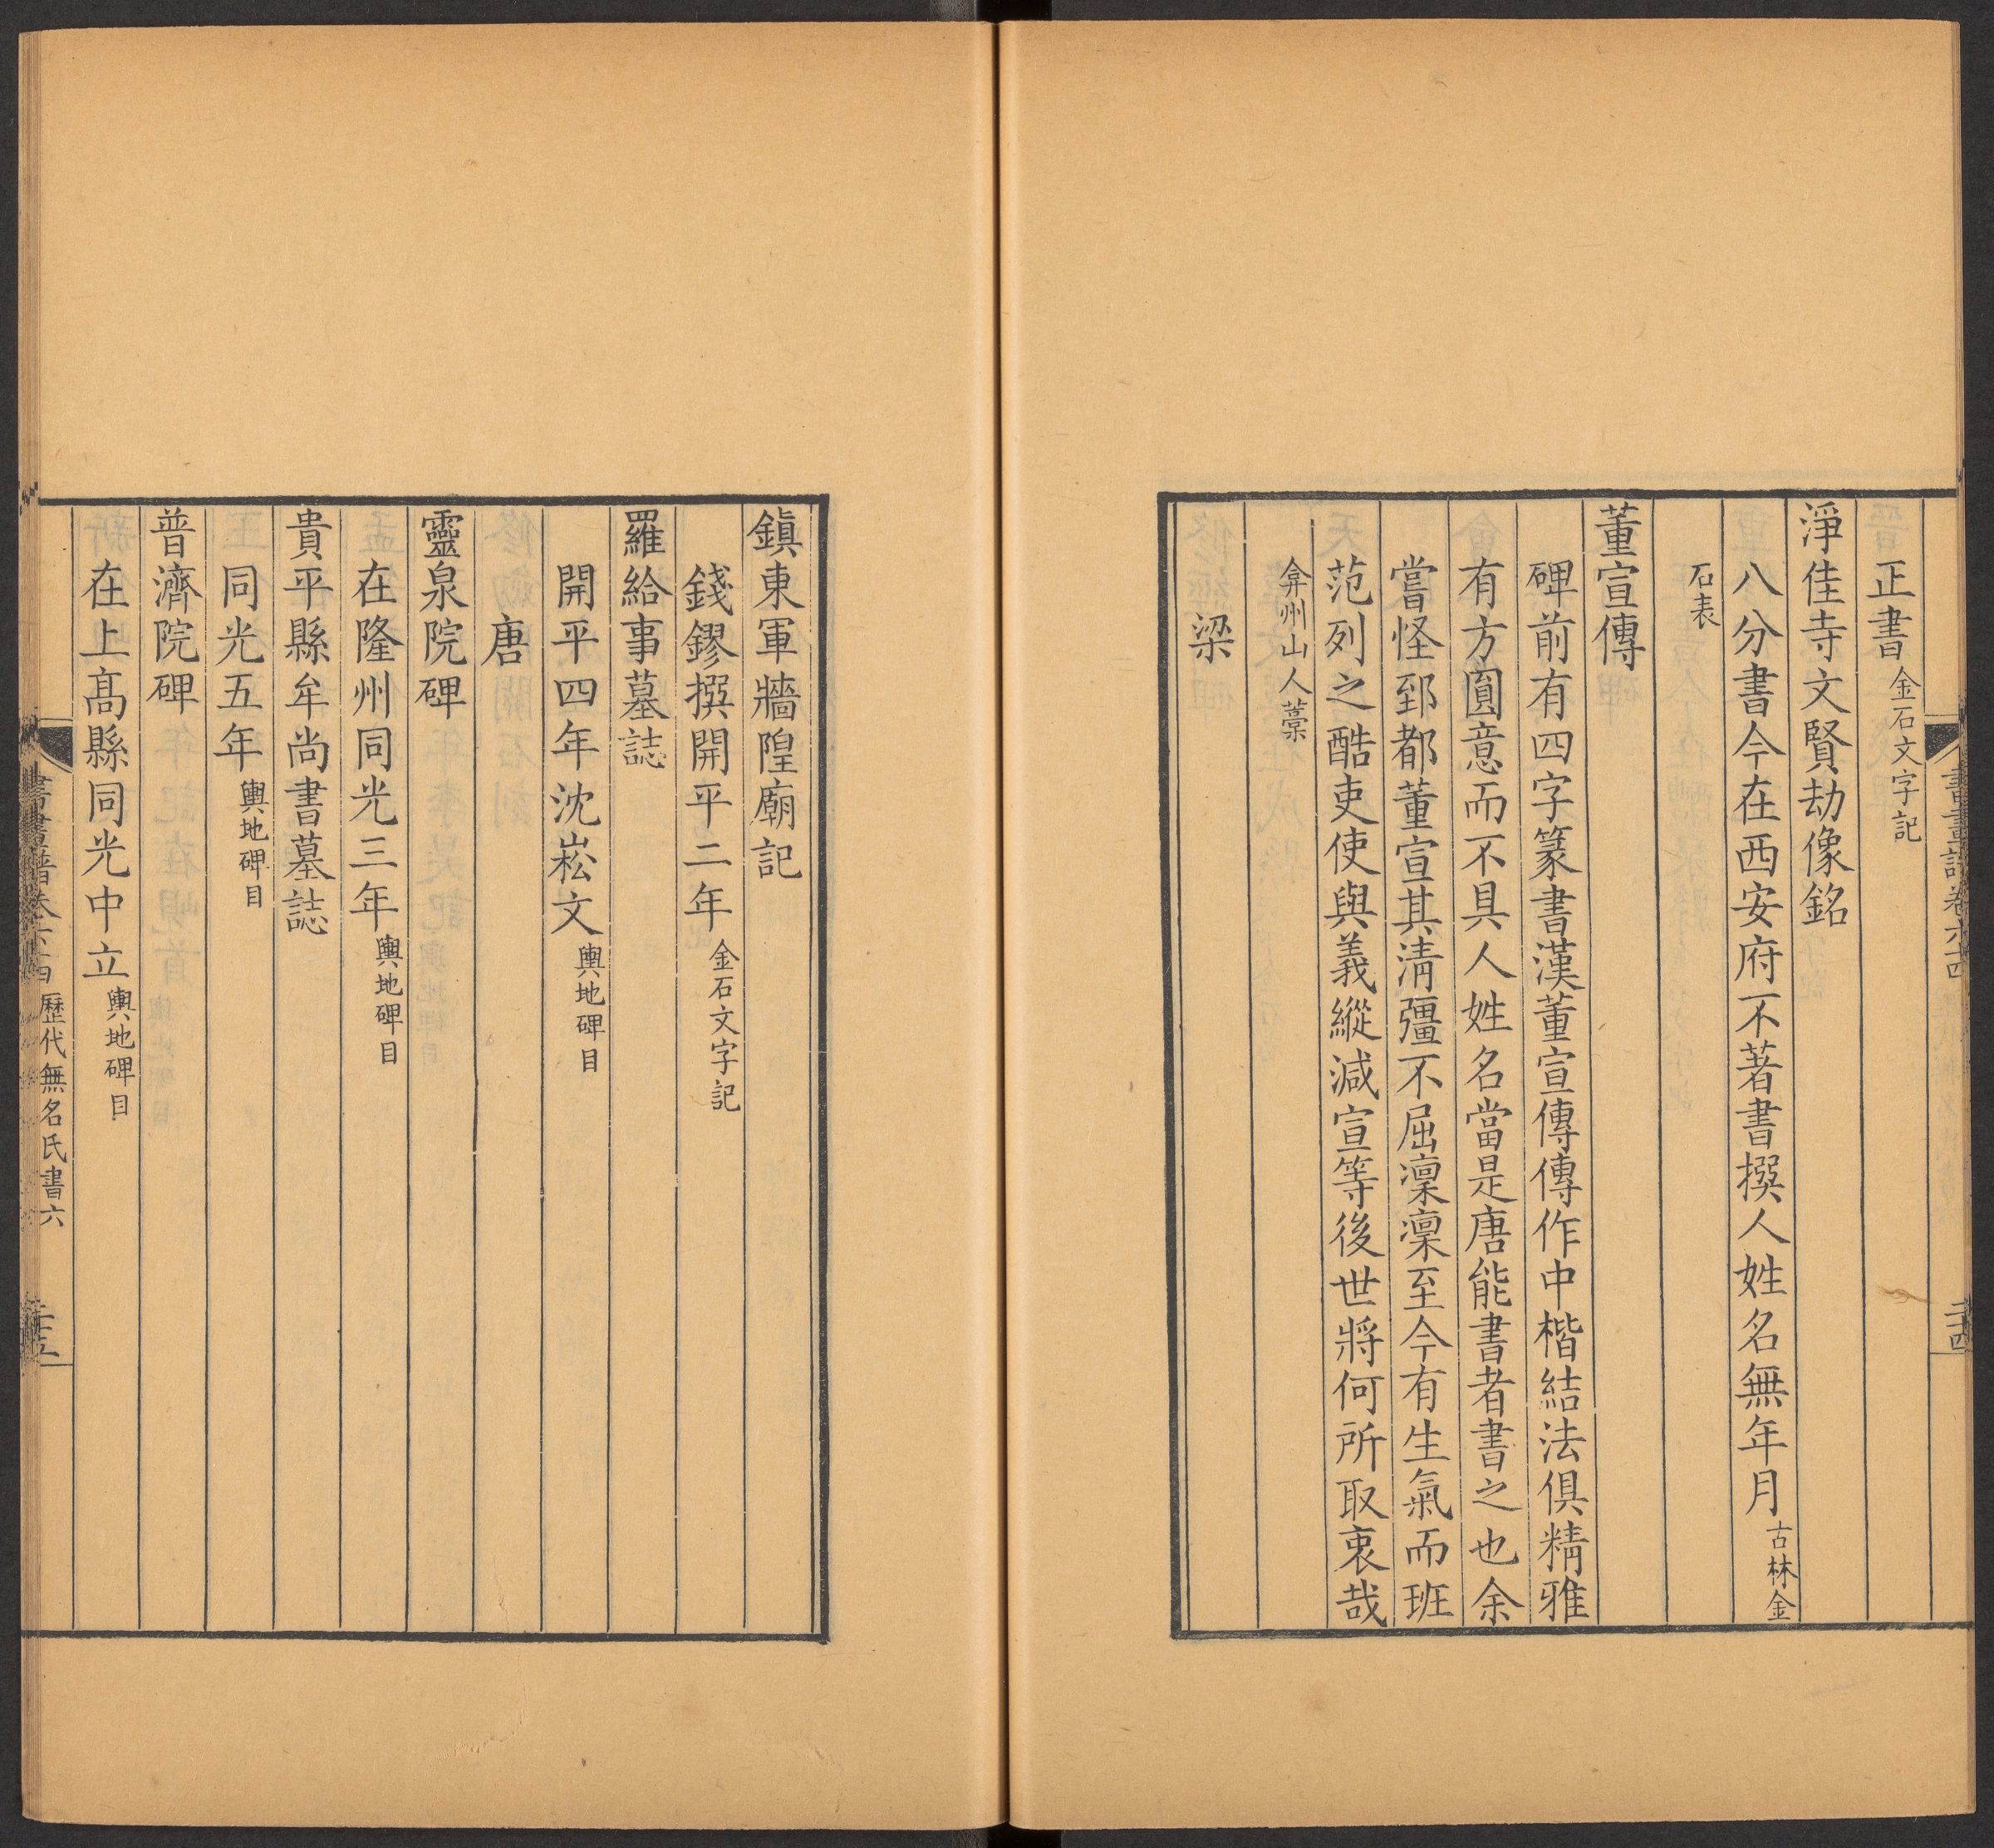 書畫譜卷六十四
二十四
正書金石文字記
淨佳寺文賢劫像銘
八分書今在西安府不著書撰人姓名無年月古林金
石表
董宣傳
碑前有四字篆書漢董宣傳傳作中楷結法俱精雅
有方圓意而不具人姓名當是唐能書者書之也余
嘗怪郅都董宣其清彊不屈凜凜至今有生氣而班
范列之酷吏使與義縱減宣等後世將何所取衷哉
弇州山人藁
梁
鎮東軍牆隍廟記
錢鏐撰開平二年金石文字記
羅給事墓誌
開平四年沈崧文輿地碑目
唐
靈泉院碑
在隆州同光三年輿地碑目
貴平縣牟尚書墓誌
同光五年輿地碑目
普濟院碑
在上高縣同光中立輿地碑目
書畫譜卷六十四 歷代無名氏書六
二十五